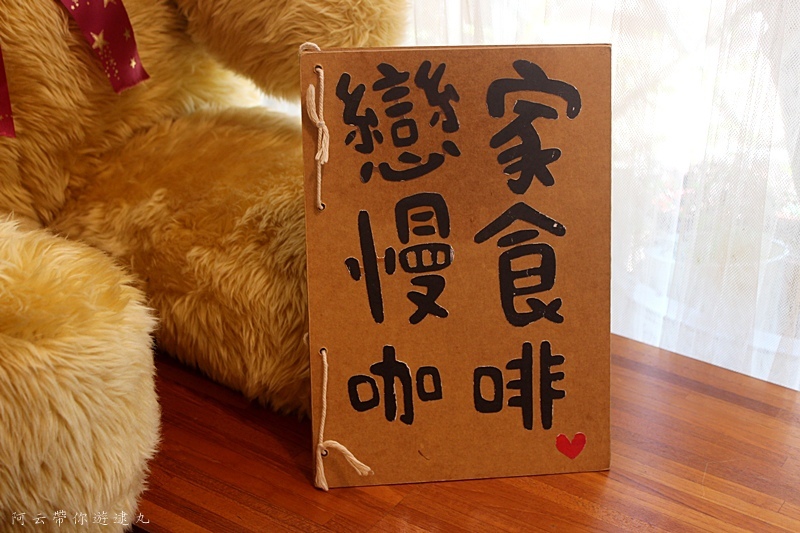 戀家
慢食
咖啡
阿云帶你遊逮丸